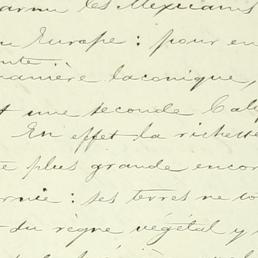 parmi les Mexicains
Europe : pour en
manière laconique,
une seconde Cali
En effet la richesse
plus grande encor
rnie : ses terres ne so
du règne végétal y